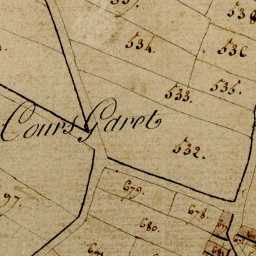 534.
536
533.
535.
Cours Garet
532.
97.
679.
678.
680.